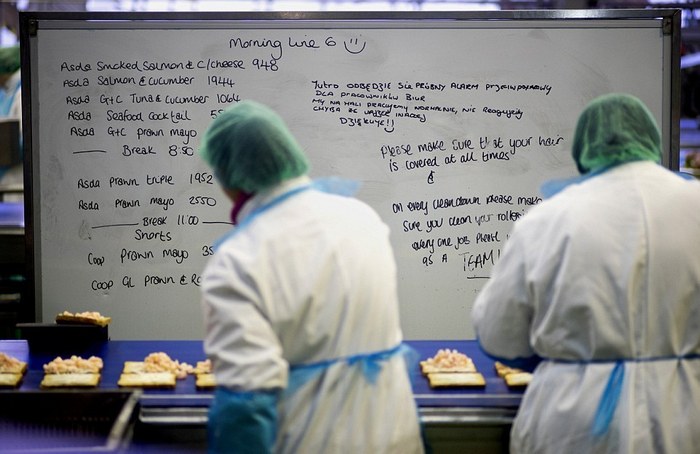 Morning Line 6
Asda Smoked Salmon & C/cheese 948
Asda Salmon & cucumber 1944
Asda G+C Tuna & cucumber 1064
Asda Seafood cocktail
Asda G+C prawn mayo
Break 8:50
Asda Prawn triple 1952
Asda Prawn mayo 2550
Break 11:00
Shorts
Coop Prawn mayo
Coop GL Prawn &
Jutro odbędzie się próbny alarm przeciwpożarowy
dla pracowników biur
my na hali pracujemy normalnie, nie reagujemy
chyba że usłyszę inaczej
Dziękuję!!
Please make sure that your hair
is covered at all times
&
on every cleandown please make
sure you clean your rollers
every one job please
as a TEAM!